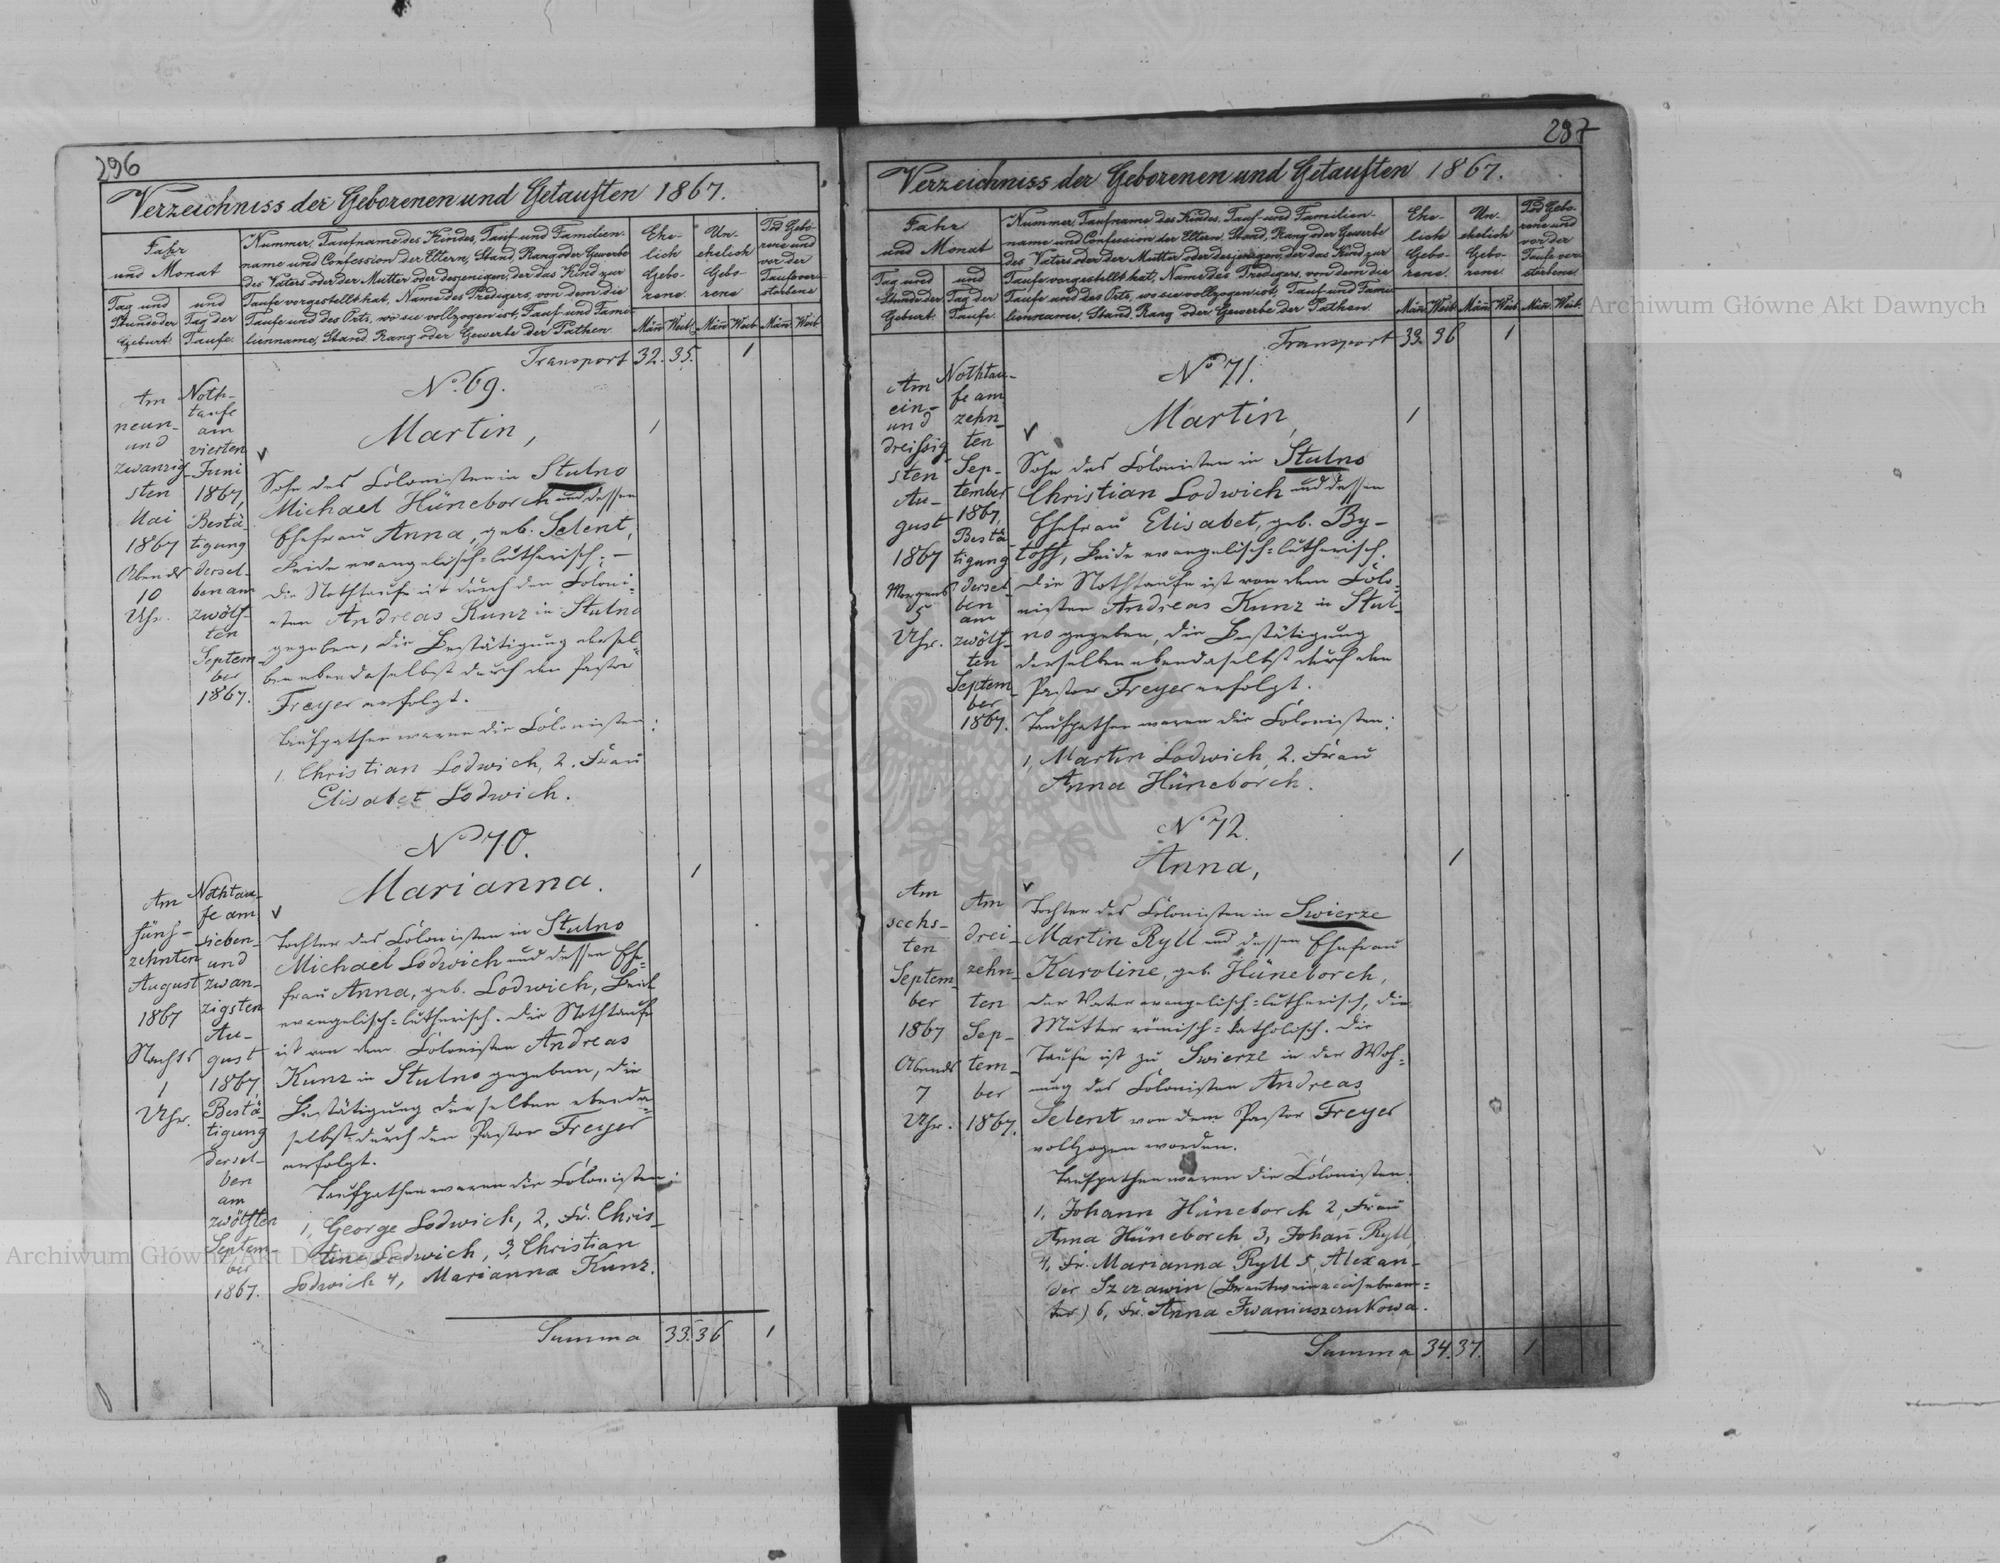 296
Verzeichniss der Geborenen und Getauften 1867.
Jahr
und Monat
Tag und
Stunde der
Geburt.
und
Tag der
Taufe.
Nummer, Taufname des Kindes, Tauf- und Familien-
name und Confession der Eltern, Stand, Rang oder Gewerbe
des Vaters oder der Mutter oder desjenigen, der das Kind zur
Taufe vorgestellt hat, Name des Predigers, von dem die
Taufe und des Orts, wo sie vollzogen ist, Tauf- und Fami-
lienname, Stand, Rang oder Gewerbe der Pathen.
Ehe-
lich
Gebo-
rene.
Un-
ehelich
Gebo-
rene
Tod Gebo-
rene und
vor der
Taufe ver-
storbene
Män. Weib. Män. Weib. Män. Weib.
Transport 32. 35. 1
No. 69.
Am
neun-
und
zwanzig-
sten
Mai
1867
Abends
10
Uhr.
Noth-
taufe
am
vierten
Juni
1867,
Bestä-
tigung
dersel-
ben am
zwölf-
ten
Septem-
ber
1867.
Martin, 1
Sohn des Colonisten in Stulno
Michael Hüneborch und dessen
Ehefrau Anna, geb. Selent,
beide evangelisch=lutherisch. —
Die Nothtaufe ist durch den Coloni-
sten Andreas Kunz in Stulno
gegeben, die Bestätigung dersel-
ben ebendaselbst durch den Pastor
Freyer erfolgt.
Taufpathen waren die Colonisten:
1, Christian Lodwich, 2. Frau
Elisabet Lodwich.
No 70.
Am
fünf-
zehnten
August
1867
Nachts
1
Uhr.
Nothtau-
fe am
sieben-
und
zwan-
zigsten
Au-
gust
1867
Bestä-
tigung
dersel-
ben
am
zwölften
Septem-
ber
1867.
Marianna. 1
Tochter des Colonisten in Stulno
Michael Lodwich und dessen Ehe-
frau Anna, geb. Lodwich, beide
evangelisch=lutherisch. Die Nothtaufe
ist von dem Colonisten Andreas
Kunz in Stulno gegeben, die
Bestätigung derselben ebenda-
selbst durch den Pastor Freyer
erfolgt.
Taufpathen waren die Colonisten:
1, George Lodwich, 2, Fr. Chris-
tine Lodwich, 3, Christian
Lodwich 4, Marianna Kunz.
Summa 33. 36 1
297
Verzeichniss der Geborenen und Getauften 1867.
Jahr
und Monat
Tag und
Stunde der
Geburt.
und
Tag der
Taufe.
Nummer, Taufname des Kindes, Tauf- und Familien-
name und Confession der Eltern, Stand, Rang oder Gewerbe
des Vaters oder der Mutter oder desjenigen, der das Kind zur
Taufe vorgestellt hat, Name des Predigers, von dem die
Taufe und des Orts, wo sie vollzogen ist, Tauf- und Fami-
lienname, Stand, Rang oder Gewerbe der Pathen.
Ehe-
lich
Gebo-
rene.
Un-
ehelich
Gebo-
rene.
Tod Gebo-
rene und
vor der
Taufe ver-
storbene.
Män. Weib. Män. Weib. Män. Weib.
Transport 33. 36 1
No 71.
Am
ein-
und
dreißig-
sten
Au-
gust
1867
Morgens
5
Uhr.
Nothtau-
fe am
zehn-
ten
Sep-
tember
1867,
Bestä-
tigung
dersel-
ben
am
zwölf-
ten
Septem-
ber
1867.
Martin, 1
Sohn des Colonisten in Stulno
Christian Lodwich und dessen
Ehefrau Elisabet, geb. By-
toff, beide evangelisch=lutherisch.
Die Nothtaufe ist von dem Colo-
nisten Andreas Kunz in Stul-
no gegeben, die Bestätigung
derselben ebendaselbst durch den
Pastor Freyer erfolgt.
Taufpathen waren die Colonisten:
1, Martin Lodwich, 2. Frau
Anna Hüneborch.
No 72.
Am
sechs-
ten
Septem-
ber
1867
Abends
7
Uhr.
Am
drei-
zehn-
ten
Sep-
tem-
ber
1867.
Anna, 1
Tochter des Colonisten in Swierze
Martin Ryll und dessen Ehefrau
Karoline, geb. Hüneborch,
der Vater evangelisch=lutherisch, die
Mutter römisch=katholisch. Die
Taufe ist zu Swierze in der Woh-
nung des Colonisten Andreas
Selent von dem Pastor Freyer
vollzogen worden.
Taufpathen waren die Colonisten:
1, Johann Hüneborch 2, Frau
Anna Hüneborch, 3, Johañ Ryll,
4, Fr. Marianna Ryll 5, Alexan-
der Szczawin (Branntweinaccisebeam-
ter) 6, Fr. Anna Iwaniuszcukowa.
Summa 34. 37. 1
Archiwum Główne Akt Dawnych
Archiwum Główne Akt Dawnych